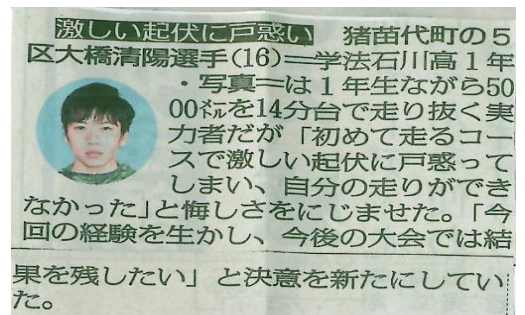 激しい起伏に戸惑い　猪苗代町の5
区大橋清陽選手(16)＝学法石川高1年
・写真＝は1年生ながら50
00㍍を14分台で走り抜く実
力者だが「初めて走るコー
スで激しい起伏に戸惑って
しまい、自分の走りができ
なかった」と悔しさをにじませた。「今
回の経験を生かし、今後の大会では結
果を残したい」と決意を新たにしてい
た。